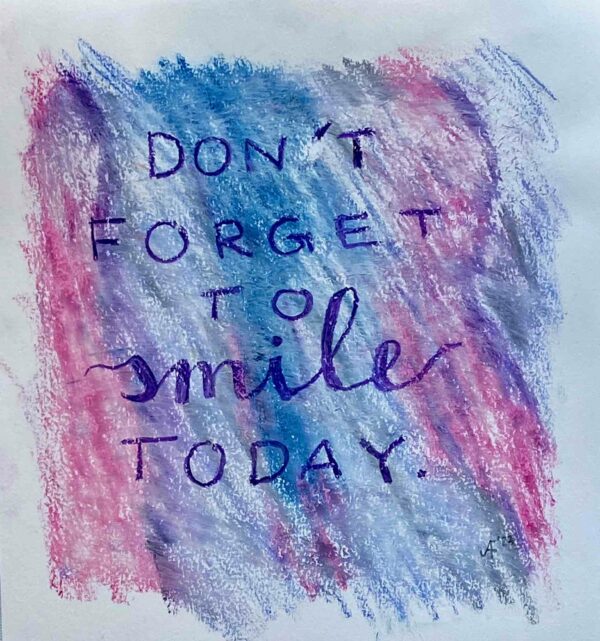 DON'T
FORGET
TO
smile
TODAY.